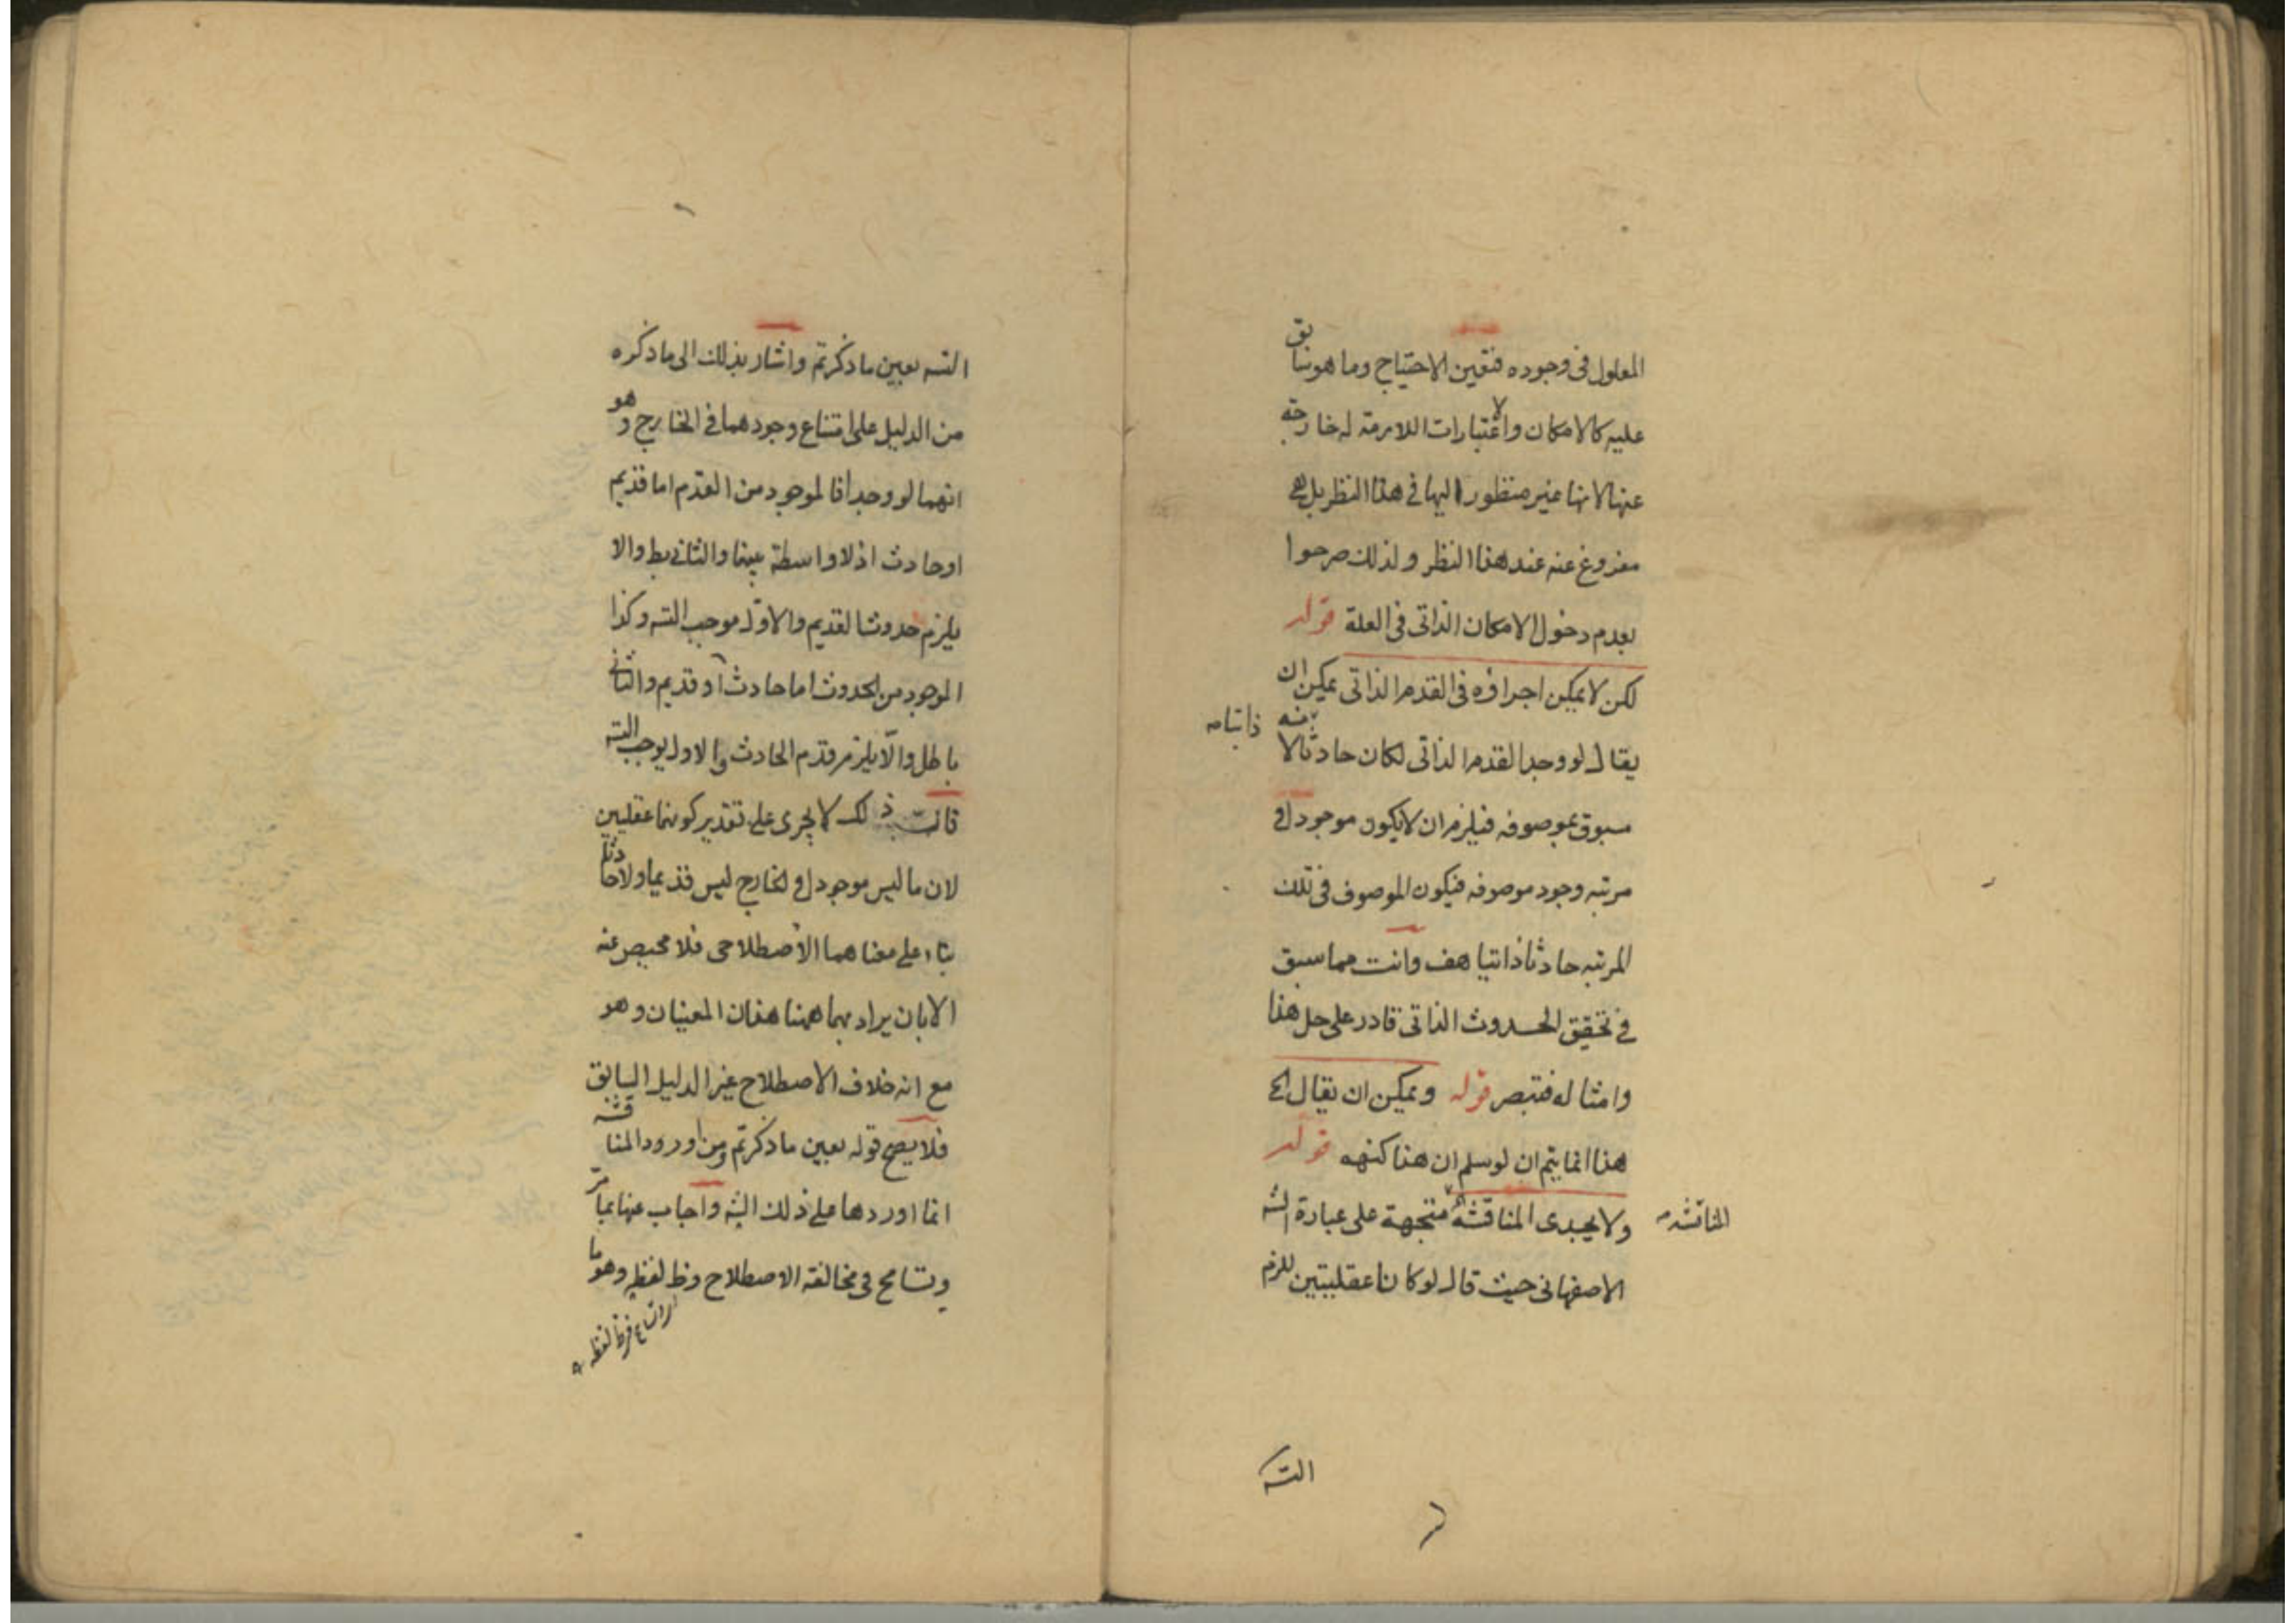 المعلول فى وجوده فتعين الاحتياج وما هو سابق
عليه كالامكان والاعتبارات اللازمة له خارجة
عنها لانها غير منظور اليها فى هذا النظر بل هى
مفروغ عنه عند هذا النظر ولذلك صرحوا
بعدم دخول الامكان الذاتى فى العلة قوله
لكن لا يمكن اجراؤه فى القدم الذاتى يمكن ان
يقال لو وجد القدم الذاتى لكان حادثا لانه
ذاتيا
مسبوق بموصوفه فيلزم ان لا يكون موجودا فى
مرتبه وجود موصوفه فيكون الموصوف فى تلك
المرتبه حادثا ذاتيا هف وانت مما سبق
فى تحقيق الحدوث الذاتى قادر على حل هذا
وامثاله فتبصر قوله ويمكن ان يقال الخ
هذا انما يتم ان لو سلم ان هذا كنهه قوله
ولا يجدى المناقشة متجهة على عبارة الشه
المناقشه
الاصفهانى حيث قال لو كانا عقليتين للزم
التسه
التسه بعين ما ذكرتم واشار بذلك الى ما ذكره
من الدليل على امتناع وجودهما فى الخارج وهو
انهما لو وجدا فالموجود من القدم اما قديم
او حادث اذ لا واسطة بينها والثانى بط والا
يلزم حدوث القديم والاول موجب التسه وكذا
الموجود من الحدوث اما حادث او قديم والثانى
باطل والا يلزم قدم الحادث والاول يوجب التسه
فانت ذلك لا يجرى على تقدير كونهما عقليين
لان ما ليس موجودا فى الخارج ليس قديما ولا حادثا
بناء على معناهما الاصطلاحى فلا محيص عنه
الا بان يراد بهما ههنا هذان المعنيان وهو
مع انه خلاف الاصطلاح غير الدليل السابق
فلا يصح قوله بعين ما ذكرتم ومن اورد المناقشه
انما اوردها على ذلك الشه واجاب عنها بما مر
وتسامح فى مخالفة الاصطلاح وظ لفظه وهو ما
لفظه